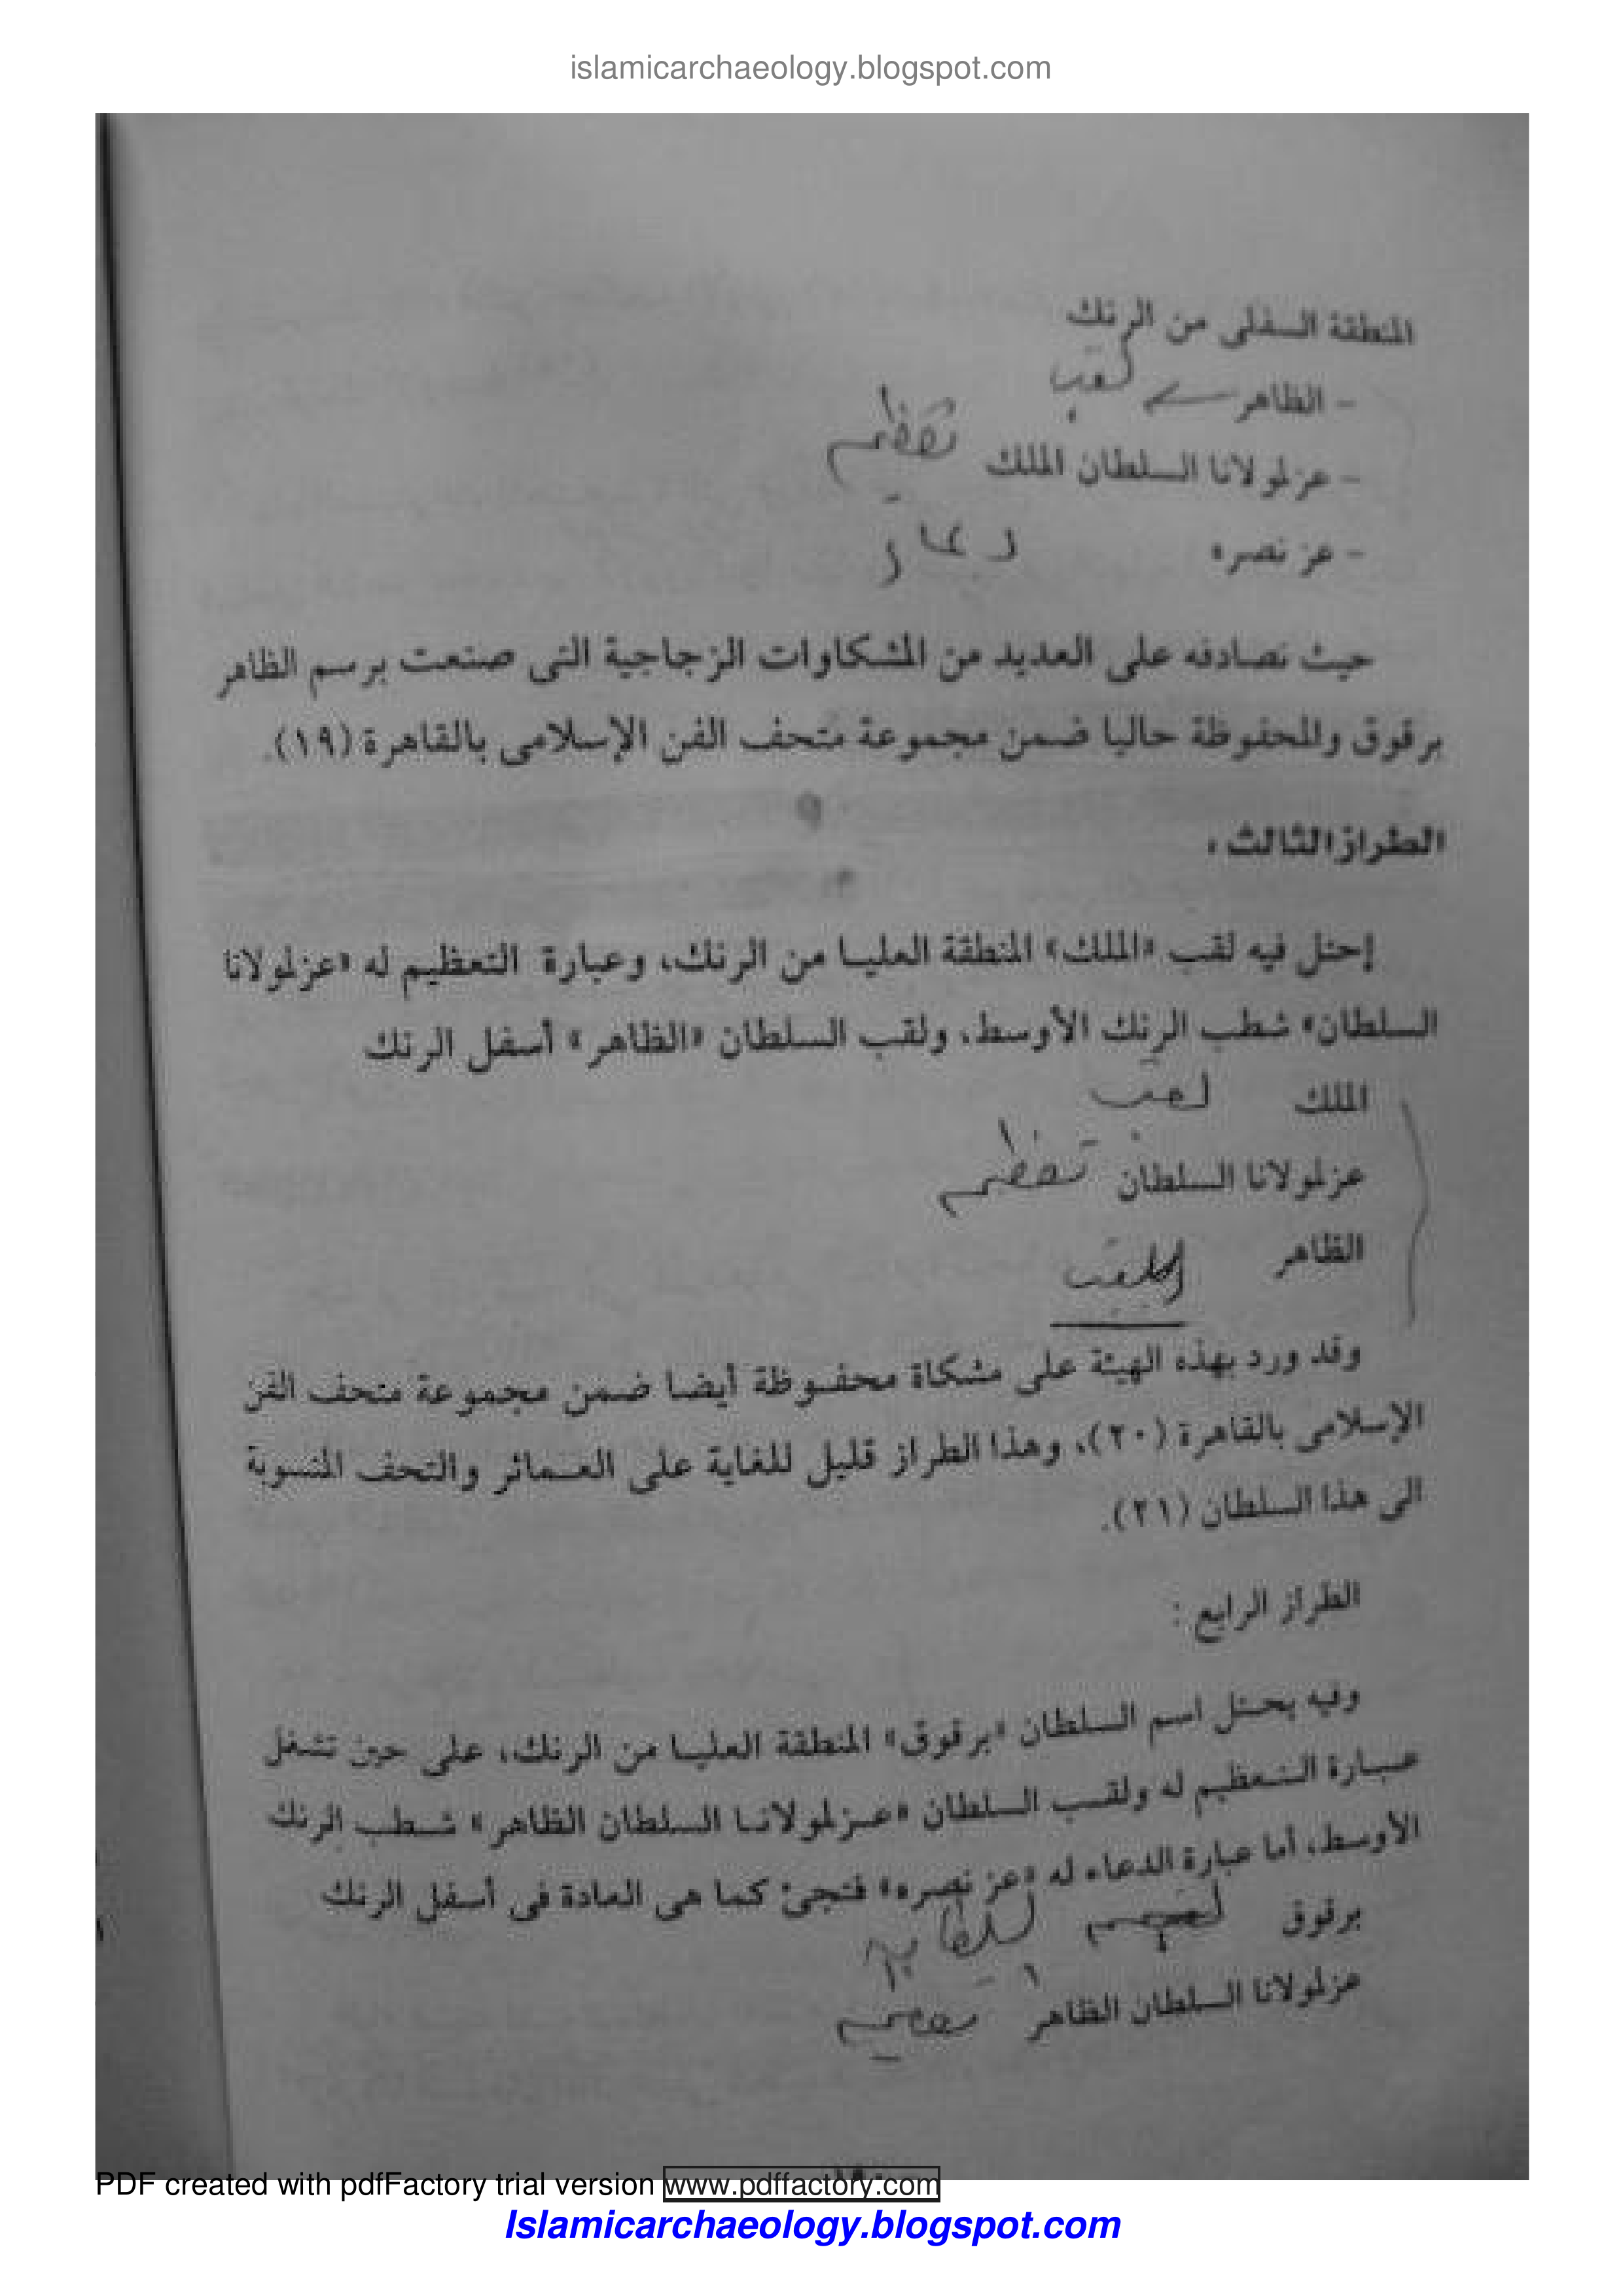 islamicarchaeology.blogspot.com
المنطقة السفلى من الرنك
- الظاهر لقب
- عزلمولانا السلطان الملك تعظيم
- عز نصره دعائى
حيث نصادفه على العديد من المشكاوات الزجاجية التى صنعت برسم الظاهر
برقوق والمحفوظة حاليا ضمن مجموعة متحف الفن الإسلامى بالقاهرة (١٩).
الطراز الثالث :
إحتل فيه لقب «الملك» المنطقة العليا من الرنك، وعبارة التعظيم له «عزلمولانا
السلطان» شطب الرنك الأوسط، ولقب السلطان «الظاهر» أسفل الرنك
الملك لقب
عزلمولانا السلطان تعظيم
الظاهر
وقد ورد بهذه الهيئة على مشكاة محفوظة أيضا ضمن مجموعة متحف الفن
الإسلامى بالقاهرة (٢٠)، وهذا الطراز قليل للغاية على العمائر والتحف المنسوبة
الى هذا السلطان (٢١).
الطراز الرابع :
وفيه يحتل اسم السلطان «برقوق» المنطقة العليا من الرنك، على حين تشغل
عبارة التعظيم له ولقب السلطان «عزلمولانا السلطان الظاهر» شطب الرنك
الأوسط، أما عبارة الدعاء له «عز نصره» فتجئ كما هى العادة فى أسفل الرنك
برقوق
عزلمولانا السلطان الظاهر تعظيم
PDF created with pdfFactory trial version www.pdffactory.com
Islamicarchaeology.blogspot.com